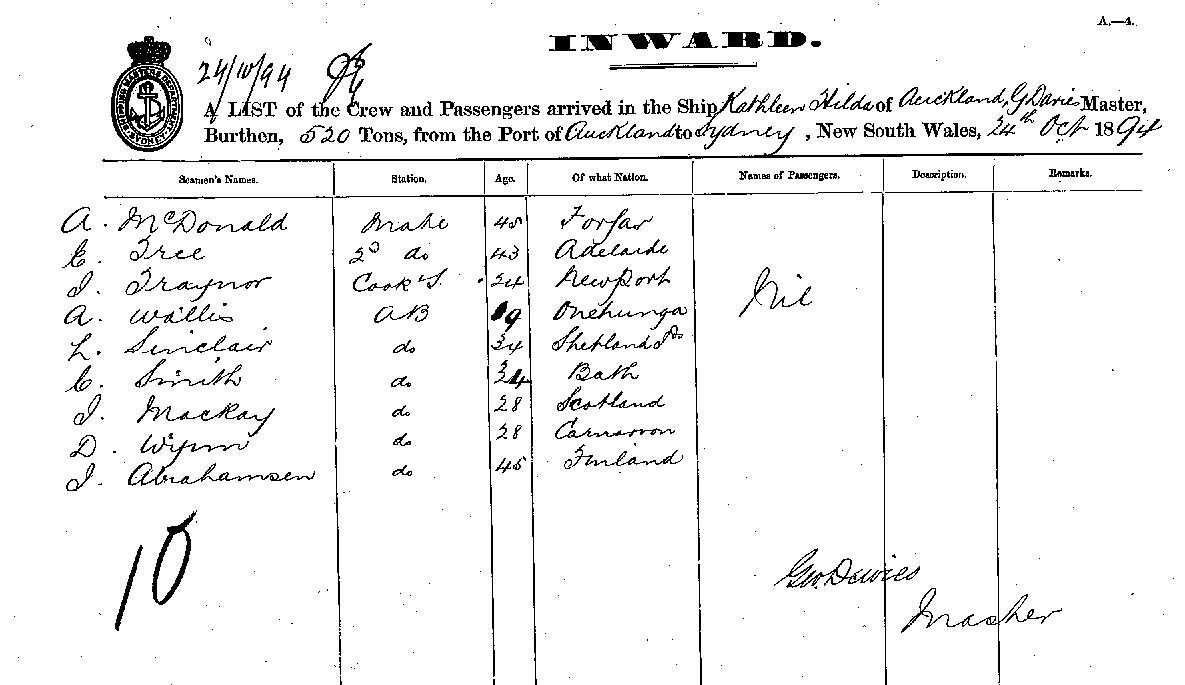 A.—4.
INWARD.
24/10/94
A LIST of the Crew and Passengers arrived in the Ship Kathleen Hilda of Auckland, G Davies Master,
Burthen, 520 Tons, from the Port of Auckland to Sydney, New South Wales, 24th Oct 1894
Seamen's Names. Station. Age. Of what Nation. Names of Passengers. Description. Remarks.
A. McDonald Mate 45 Forfar
C. Tree 2d do 43 Adelaide
J. Traynor Cook & S. 24 Newport
Nil
A. Wallis AB 19 Onehunga
L. Sinclair do 34 Shetland Ids
C. Smith do Bath
J. Mackay do 28 Scotland
D. Wynn do 28 Carnarvon
J. Abrahamsen do 45 Finland
10
Geo. Davies
Master